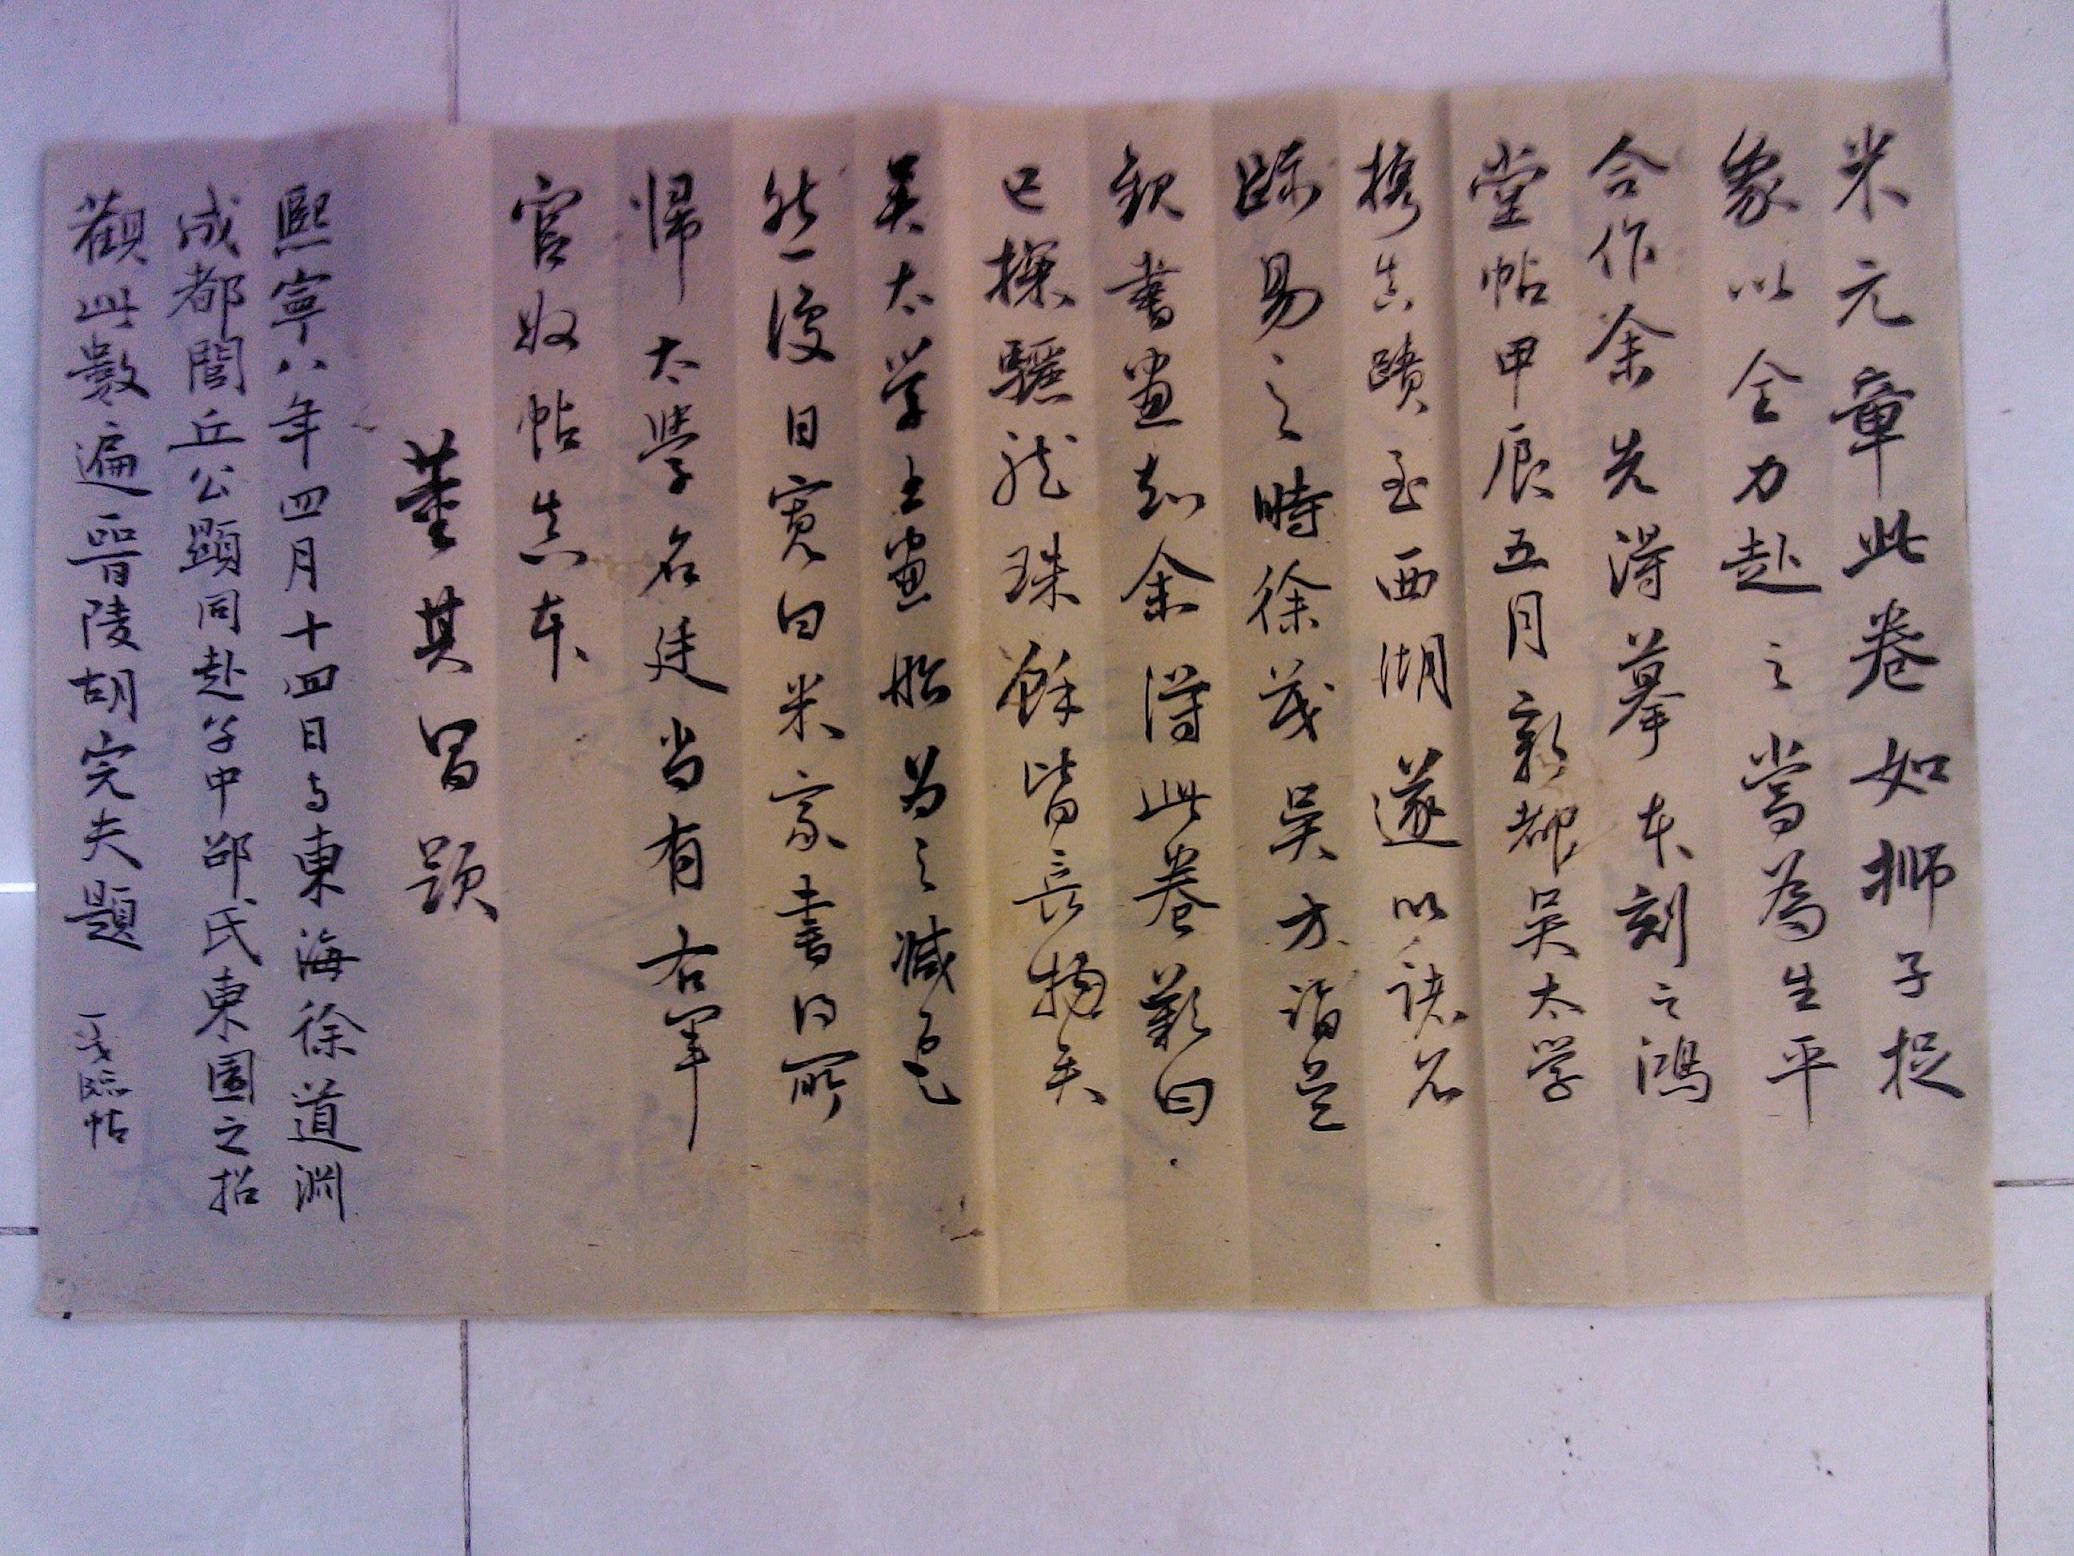 米元章此卷如狮子捉
象以全力赴之當為生平
合作余先得摹本刻之鴻
堂帖甲辰五月新都吳太学
携真蹟至西湖遂以諸名
跡易之時徐茂吳方詣吳
觀書畫知余得此卷歎曰
已探驪龍珠餘皆長物矣
吴太学書画船為之減色
然後日寬曰米家書得所
歸太學名廷尚有右軍
官奴帖真本
董其昌題
熙寧八年四月十四日与東海徐道淵
成都閭丘公顯同赴子中邵氏東園之招
觀此數遍晋陵胡完夫題
臨帖